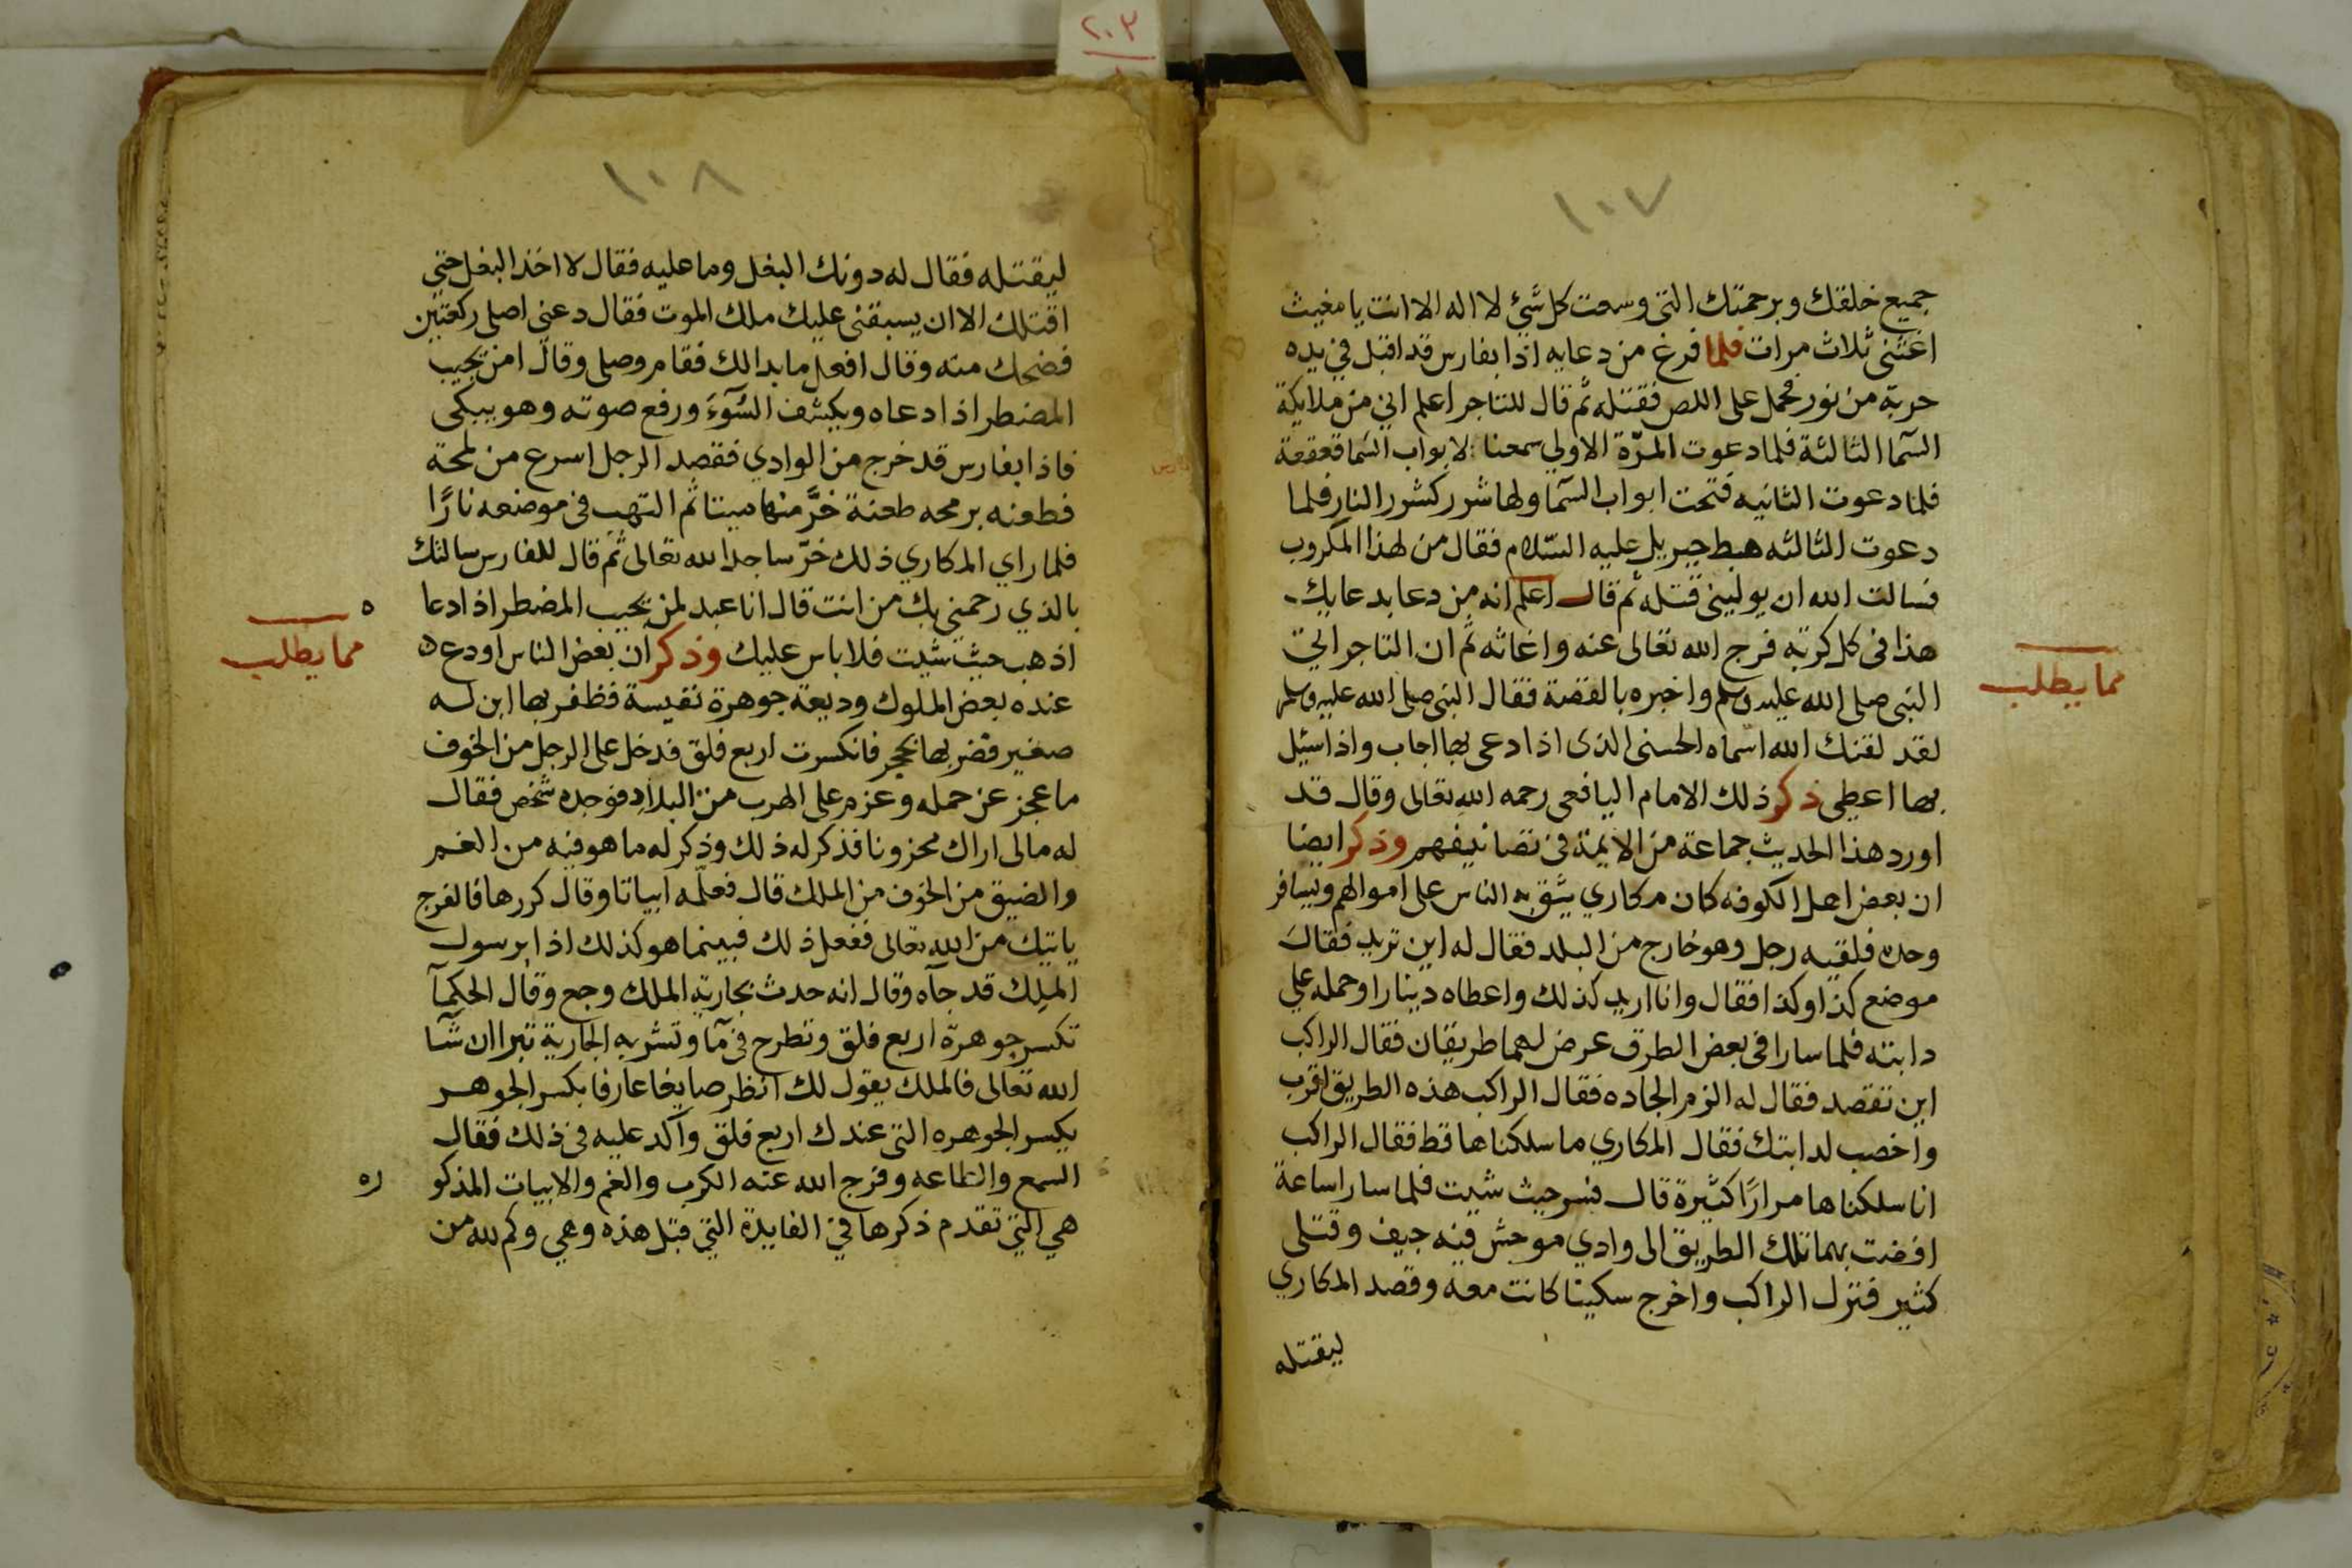 ٢٠٣
١٠٧
جميع خلقك وبرحمتك التي وسعت كل شئ لا اله الا انت يا مغيث
اغثنى ثلاث مرات فلما فرغ من دعايه اذا بفارس قد اقبل في يده
حربة من نور فحمل على اللص فقتله ثم قال للتاجر اعلم اني من ملايكة
السما الثالثة فلما دعوت المرّة الاولي سمعنا لابواب السما قعقعة
فلما دعوت الثانيه فتحت ابواب السما ولها شرر كشرر النار فلما
دعوت الثالثه هبط جبريل عليه السلام فقال من لهذا المكروب
فسالت الله ان يوليني قتله ثم قال اعلم انه من دعا بدعايك
هذا في كل كربة فرج الله تعالى عنه واغاثه ثم ان التاجر اتي
النبى صلى الله عليه وسلم واخبره بالقصة فقال النبى صلى الله عليه وسلم
لقد لقنك الله اسماه الحسنى الذى اذا دعى بها اجاب واذا سئيل
بها اعطي ذكر ذلك الامام اليافعى رحمه الله تعالى وقال قد
اورد هذا الحديث جماعة من الايمة في تصانيفهم وذكر ايضا
ان بعض اهل الكوفه كان مكاري يثق به الناس على اموالهم ويسافر
وحده فلقيه رجل وهو خارج من البلد فقال له اين تريد فقال
موضع كذا وكذا فقال وانا اريد كذلك واعطاه دينارا وحمله علي
دابته فلما سارا في بعض الطرق عرض لهما طريقان فقال الراكب
اين تقصد فقال له الزم الجاده فقال الراكب هذه الطريق اقرب
واخصب لدابتك فقال المكاري ما سلكناها قط فقال الراكب
انا سلكناها مرارًا كثيرة قال فسر حيث شيت فلما سارا ساعة
افضت بهما تلك الطريق الى وادي موحش فيه جيف وقتلى
كثير فنزل الراكب واخرج سكينا كانت معه وقصد المكاري
ليقتله
مما يطلب
١٠٨
ليقتله فقال له دونك البغل وما عليه فقال لا اخذ البغل حتي
اقتلك الا ان يسبقنى عليك ملك الموت فقال دعنى اصلى ركعتين
فضحك منه وقال افعل ما بدالك فقام وصلى وقال امن يجيب
المضطر اذا دعاه ويكشف السّوءَ ورفع صوته وهو يبكى
فاذا بفارس قد خرج من الوادي فقصد الرجل اسرع من لمحة
فطعنه برمحه طعنة خرَّ منها ميتا ثم التهب في موضعه نارًا
فلما راي المكاري ذلك خرّ ساجدا لله تعالى ثم قال للفارس سالتك
بالذي رحمني بك من انت قال انا عبد لمن يجيب المضطر اذا دعا ه
اذهب حيث شيت فلا باس عليك وذكر ان بعض الناس اودع
عنده بعض الملوك وديعة جوهرة نفيسة فظفر بها ابن له
صغير فضربها بحجر فانكسرت اربع فلق فدخل على الرجل من الخوف
ما عجز عن حمله وعزم على الهرب من البلاد فوجده شخص فقال
له مالى اراك محزونا فذكر له ذلك وذكر له ما هو فيه من الغم
والضيق من الخوف من الملك قال فعلّمه ابياتا وقال كررها فالفرج
ياتيك من الله تعالى ففعل ذلك فبينما هو كذلك اذا برسول
الملك قد جآه وقال انه حدث بجارية الملك وجع وقال الحكمآ
تكسر جوهرة اربع فلق وتطرح في مآ وتشربه الجارية تبرا ان شآ
الله تعالى فالملك يقول لك انظر صايغا عارفا بكسر الجوهر
يكسر الجوهره التى عندك اربع فلق وآكد عليه في ذلك فقال
السمع والطاعه وفرج الله عنه الكرب والغم والابيات المذكو ره
هي التي تقدم ذكرها في الفايدة التي قبل هذه وهي وكم لله من
مما يطلب